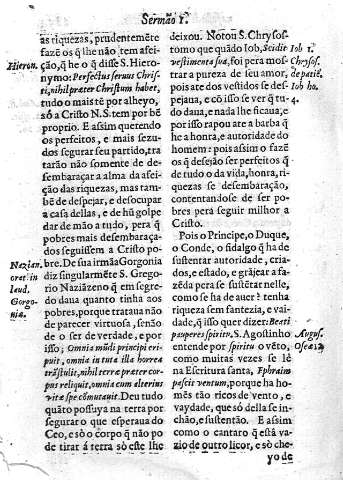 Sermão I.
as riquezas, prudentemẽte
fazem os q̃ lhe não tem afei-
ção, q̃ he o q̃ disse S. Hiero-
nymo: Perfectus seruus Chris-
ti, nihil præter Christum habet,
tudo o mais tẽ por alheyo,
só a Christo N. S. tem por bẽ
proprio. E assim querendo
os perfeitos, e mais sezu-
dos segurar seu partido, tra-
tarão não somente de de-
sembaraçar a alma da afei-
ção das riquezas, mas tam-
bẽ de despejar, e desocupar
a casa dellas, e de hũ golpe
dar de mão a tudo, pera q̃
pobres mais desembaraça-
dos seguissem a Cristo po-
bre. De sua irmãa Gorgonia
diz singularmẽte S. Grego-
rio Naziãzeno q̃ em segre-
do daua quanto tinha aos
pobres, porque trataua não
de parecer virtuosa, senão
de o ser de verdade, e por
isso; Omnia mũdi principi eri-
puit, omnia in tuta illa horrea
trãstulit, nihil terræ præter cor-
pus reliquit, omnia cum alterius
vitæ spe cõmutauit. Deu tudo
quãto possuya na terra por
segurar o que esperaua do
Ceo, e só o corpo q̃ não po
de tirar á terra só este lhe
Hieron.
Nazian.
orat. in
laud.
Gorgo-
niæ.
deixou. Notou S. Chrysos-
tomo que quãdo Iob, Scidit
vestimenta sua, foi pera mos-
trar a pureza de seu amor,
pois ate dos vestidos se des-
pejaua, e cõ isso se ver q̃ tu-
do daua, e nada lhe ficaua; e
por isso rapou ate a barba q̃
he a honra, e autoridade do
homem: pois assim o fazẽ
os q̃ desejão ser perfeitos q̃
de tudo o da vida, honra, ri-
quezas se desembaração,
contentandose de ser po-
bres perá seguir milhor a
Cristo.
Pois o Principe, o Duque,
o Conde, o fidalgo q̃ ha de
sustentar autoridade, cria-
dos, e estado, e grãjear a fa-
zẽda pera se sustẽtar nelle,
como se ha de auer? tenha
riqueza sem fantezia, e vai-
dade, q̃ isso quer dizer: Beati
pauperes spiritu, S. Agostinho
entende por spiritu o vẽto,
como muitas vezes se lê
na Escritura santa, Ephraim
pascit ventum, porque ha ho-
mẽs tão ricos de vento, e
vaydade, que só della se in-
chão, e sustentão. E assim
como o cantaro q̃ está va-
zio de outro licor, e só che-
yo de
Iob 1.
Chrysos.
de patiẽ.
Iob ho.
4.
Augus.
Oseæ 12